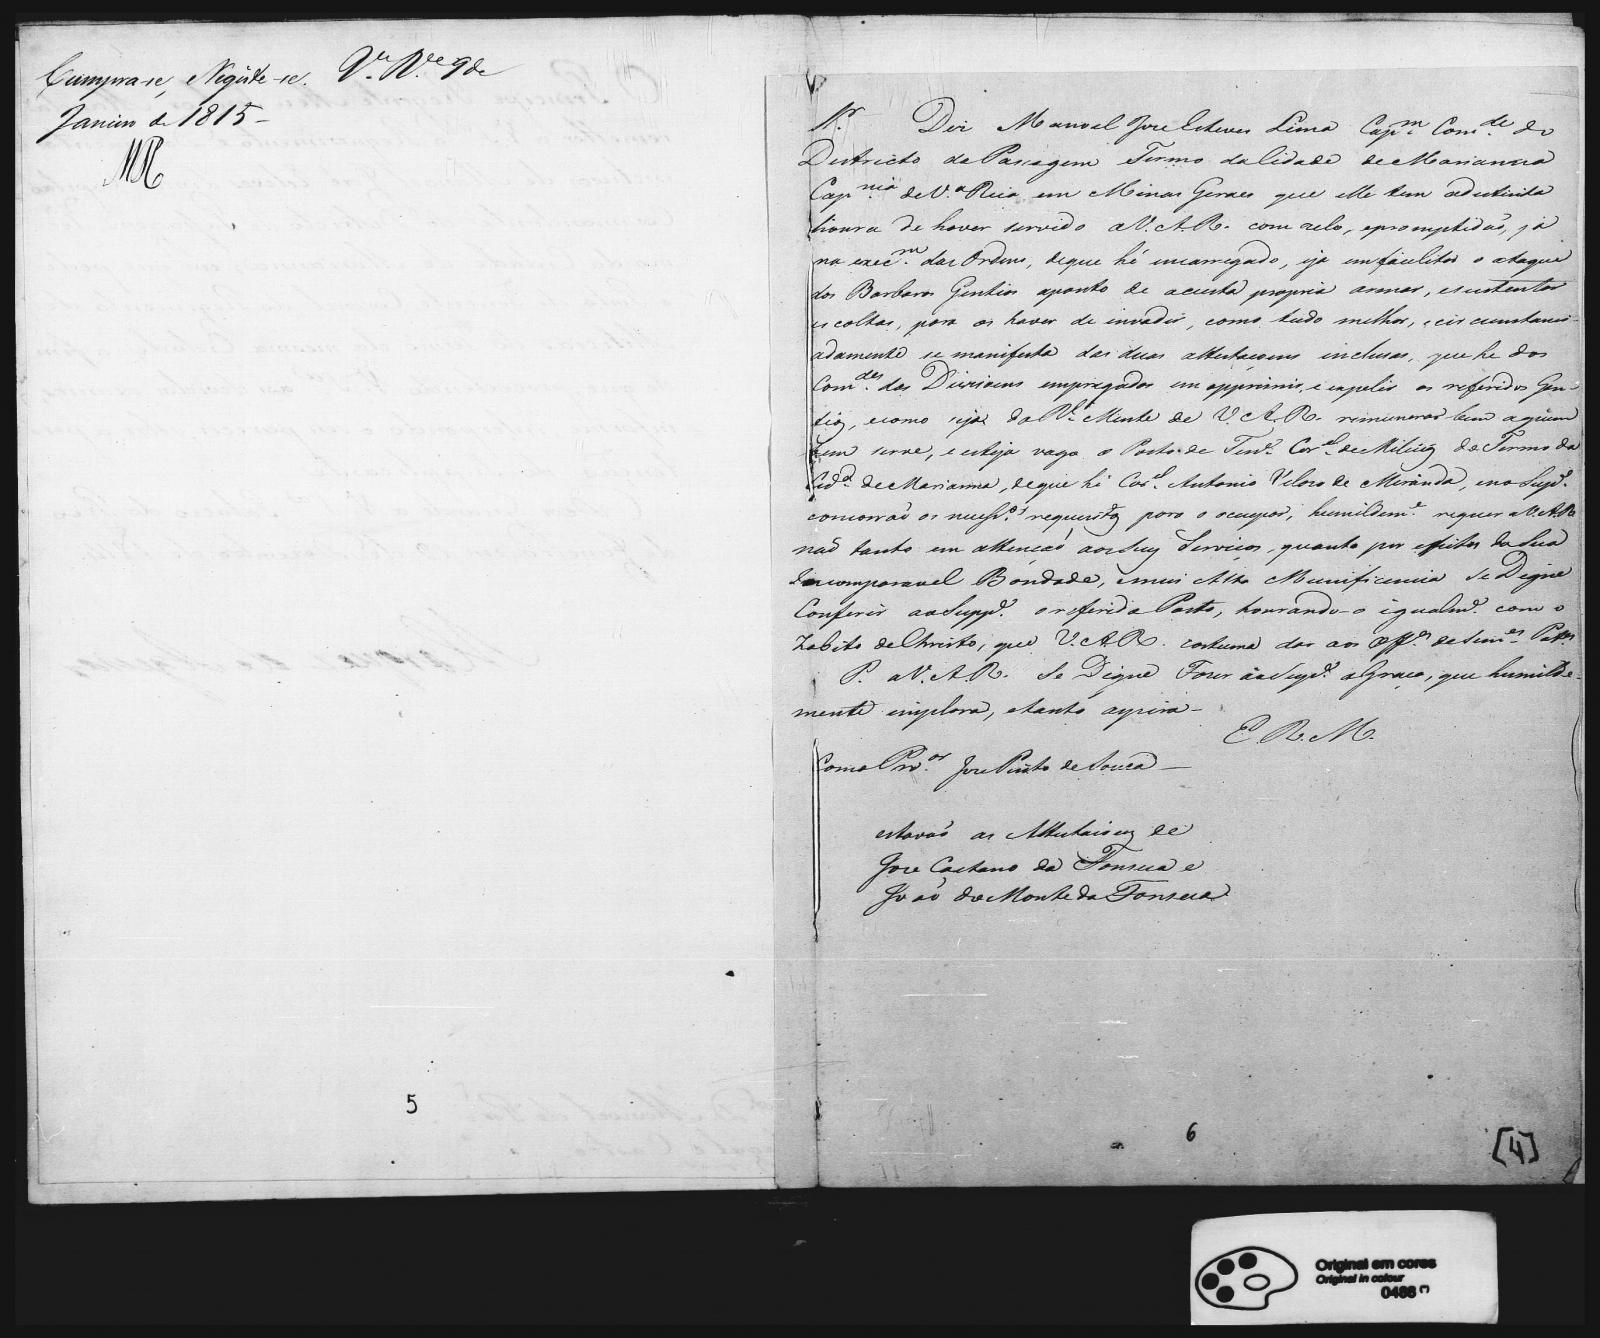 Cumpra-se, e Registe-se. Va. Rca. 9 de
Janeiro de 1815 –
5
Sr.
Diz Manoel Jose Esteves Lima Capm. Comde. do
Districto da Passagem Termo da Cidade de Marianna
Capnia. de Va. Rica em Minas Geraes que elle tem a distinta
honra de haver servido a V. A. R. com zelo, e promptidaõ, já
na execm. das Ordens, de que hé encarregado, ja em facilitar o ataque
dos Barbaros Gentios aponto de acusta propria armar, e sustentar
escoltas, para os haver de invadir, como tudo melhor, e circunstanci-
adamente se manifesta das duas attestaçoens inclusas, que he dos
Comdes. das Divizoens empregados em opprimir, e expelir os referidos Gen-
tios, e como seja da Rl. Mente de V. A. R. remunerar bem a quem
bem serve, e esteja vago o Posto de Tene. Corel. de Milicias do Termo da
Cide. de Marianna, de que hé Corel. Antonio Veloso de Miranda, e no Supe.
concorraõ os necessros. requisitos para o ocupar, humildeme. requer a V. A. R.
naõ tanto em attencaõ aos Seus Serviços, quanto por effeitos da Sua
Incomparavel Bondade, e mui Alta Munificencia Se Digne
Conferir ao Suppe. o referido Posto, honrando-o igualme. com o
Habito de Christo, que V. A. R. costuma dar aos Offes. de Semes. Pates.
P. a V. A. R. Se Digne Fazer ao Supe. a Graça, que humilde-
mente implora, e tanto aspira –
E. R. M.
Como Proor. Jose Pinto de Souza –
estavaõ as Attestaçoens de
Jose Caetano da Fonseca e
Joaõ do Monte da Fonseca
6
[4]
Original em cores
Original in colour
0488 (*)